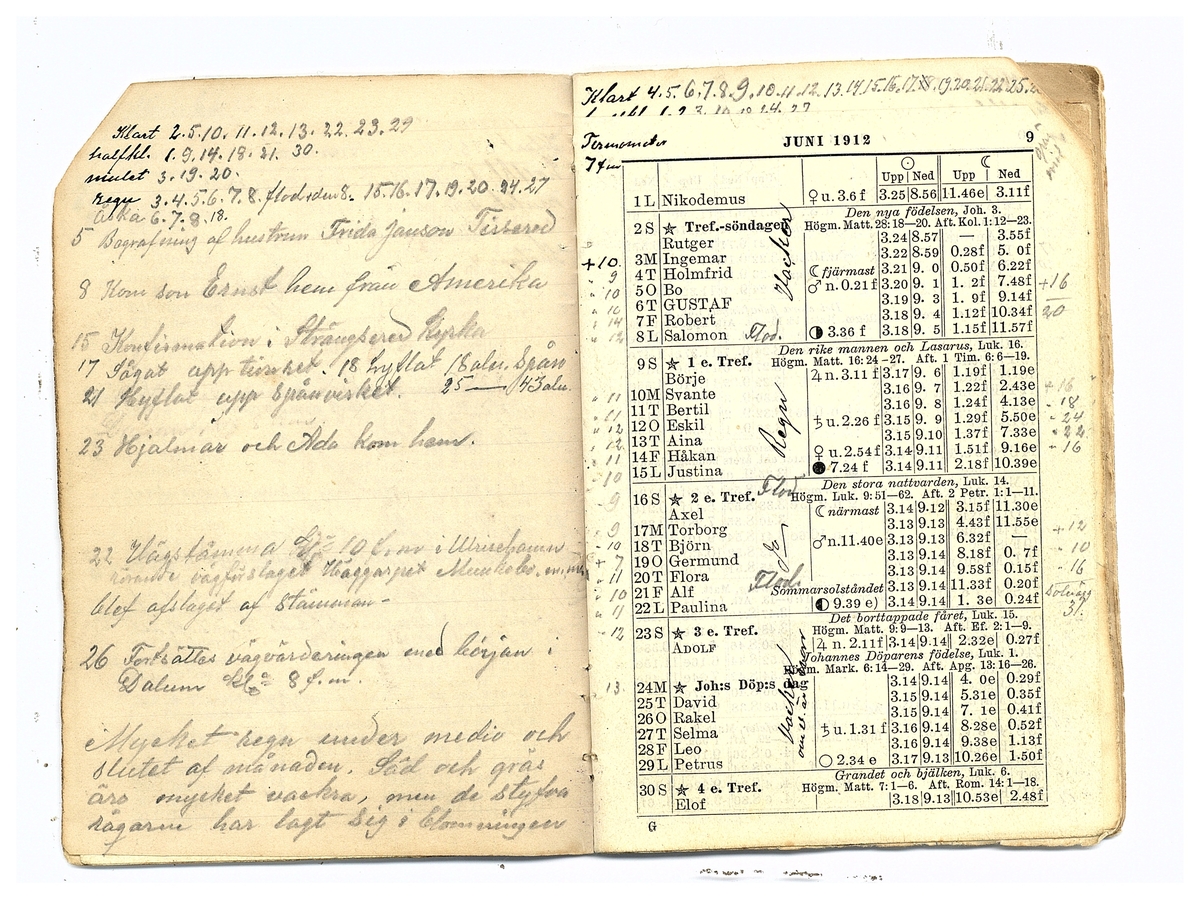 Klart 2.5.10. 11. 12. 13. 22. 23. 29
halfkl. 1.9.14.18.21. 30.
mulet 3.19.20.
regn 3.4.5.6.7.8. 15.16.17.19.20. 24.27
Åska 6.7.8.18.
5 Begrafning af hustrun Frida Janson Tissered
8 Kom son Ernst hem från Amerika
15 Konfirmation i Strängsered Kyrka
17 Sågat upp . 18 hyflat 18 aln. Spån
21 Hyflat upp Spånvirket. 25 — 43 aln.
23 Hjalmar och Ada kom hem.
22 Vägstämma Kl 10 f.m i Ulricehamn
rörande vägförslaget Häggarpet Munkebo
blef afslaget af stämman -
26 Fortsättes vägvärderingen med början i
Dalum Kl 8 f.m.
Mycket regn under medio och
slutet af månaden. Säd och gräs
äro mycket vackra, men de styfva
rågarne har lagt sig i blomningen
Klart 4.5.6.7.8.9.10.11.12.13.14.15.16.17.18.19.20.21.22.25.
Termometer
7 fm
JUNI 1912 9
☉ ☾
Upp Ned Upp Ned
1 L Nikodemus ♀ u. 3.6 f 3.25 8.56 11.46e 3.11f
Den nya födelsen, Joh. 3.
2 S ★ Tref.-söndagen Högm. Matt. 28: 18—20. Aft. Kol. 1: 12—23.
Rutger 3.24 8.57 — 3.55f
+10. 3 M Ingemar 3.22 8.59 0.28f 5. 0f
9 4 T Holmfrid ☾ fjärmast 3.21 9. 0 0.50f 6.22f
10 5 O Bo ♂ n. 0.21 f 3.20 9. 1 1. 2f 7.48f +16
6 T GUSTAF 3.19 9. 3 1. 9f 9.14f
14 7 F Robert 3.18 9. 4 1.12f 10.34f 20
12 8 L Salomon Flod. ◑ 3.36 f 3.18 9. 5 1.15f 11.57f
Vacker
Den rike mannen och Lasarus, Luk. 16.
9 S ★ 1 e. Tref. Högm. Matt. 16: 24—27. Aft. 1 Tim. 6: 6—19.
Börje ♃ n. 3.11 f 3.17 9. 6 1.19f 1.19e
11 10 M Svante 3.16 9. 7 1.22f 2.43e +16
11 11 T Bertil 3.16 9. 8 1.24f 4.13e 18
12 12 O Eskil ♄ u. 2.26 f 3.15 9. 9 1.29f 5.50e 24
12 13 T Aina 3.15 9.10 1.37f 7.33e 22
11 14 F Håkan ♀ u. 2.54 f 3.14 9.11 1.51f 9.16e 16
10 15 L Justina ● 7.24 f 3.14 9.11 2.18f 10.39e
Regn
Den stora nattvarden, Luk. 14.
9 16 S ★ 2 e. Tref. Flod Högm. Luk. 9: 51—62. Aft. 2 Petr. 1: 1—11.
Axel ☾ närmast 3.14 9.12 3.15f 11.30e
9 17 M Torborg 3.13 9.13 4.43f 11.55e +12
10 18 T Björn ♂ n. 11.40e 3.13 9.13 6.32f —
+7 19 O Germund 3.13 9.14 8.18f 0. 7f 10
11 20 T Flora 3.13 9.14 9.58f 0.15f 16
10 21 F Alf Flod Sommarsolståndet 3.13 9.14 11.33f 0.20f
11 22 L Paulina ◐ 9.39 e) 3.14 9.14 1. 3e 0.24f 31.
do
Det borttappade fåret, Luk. 15.
12 23 S ★ 3 e. Tref. Högm. Matt. 9: 9—13. Aft. Ef. 2: 1—9.
ADOLF ♃ n. 2.11f 3.14 9.14 2.32e 0.27f
Johannes Döparens födelse, Luk. 1.
Högm. Mark. 6: 14—29. Aft. Apg. 13: 16—26.
13. 24 M ★ Joh:s Döp:s dag 3.14 9.14 4. 0e 0.29f
25 T David 3.15 9.14 5.31e 0.35f
26 O Rakel 3.15 9.14 7. 1e 0.41f
27 T Selma ♄ u. 1.31 f 3.16 9.14 8.28e 0.52f
28 F Leo 3.16 9.14 9.38e 1.13f
29 L Petrus ○ 2.34 e 3.17 9.13 10.26e 1.50f
Vacker
Grandet och bjälken, Luk. 6.
30 S ★ 4 e. Tref. Högm. Matt. 7: 1—6. Aft. Rom. 14: 1—18.
Elof 3.18 9.13 10.53e 2.48f
G